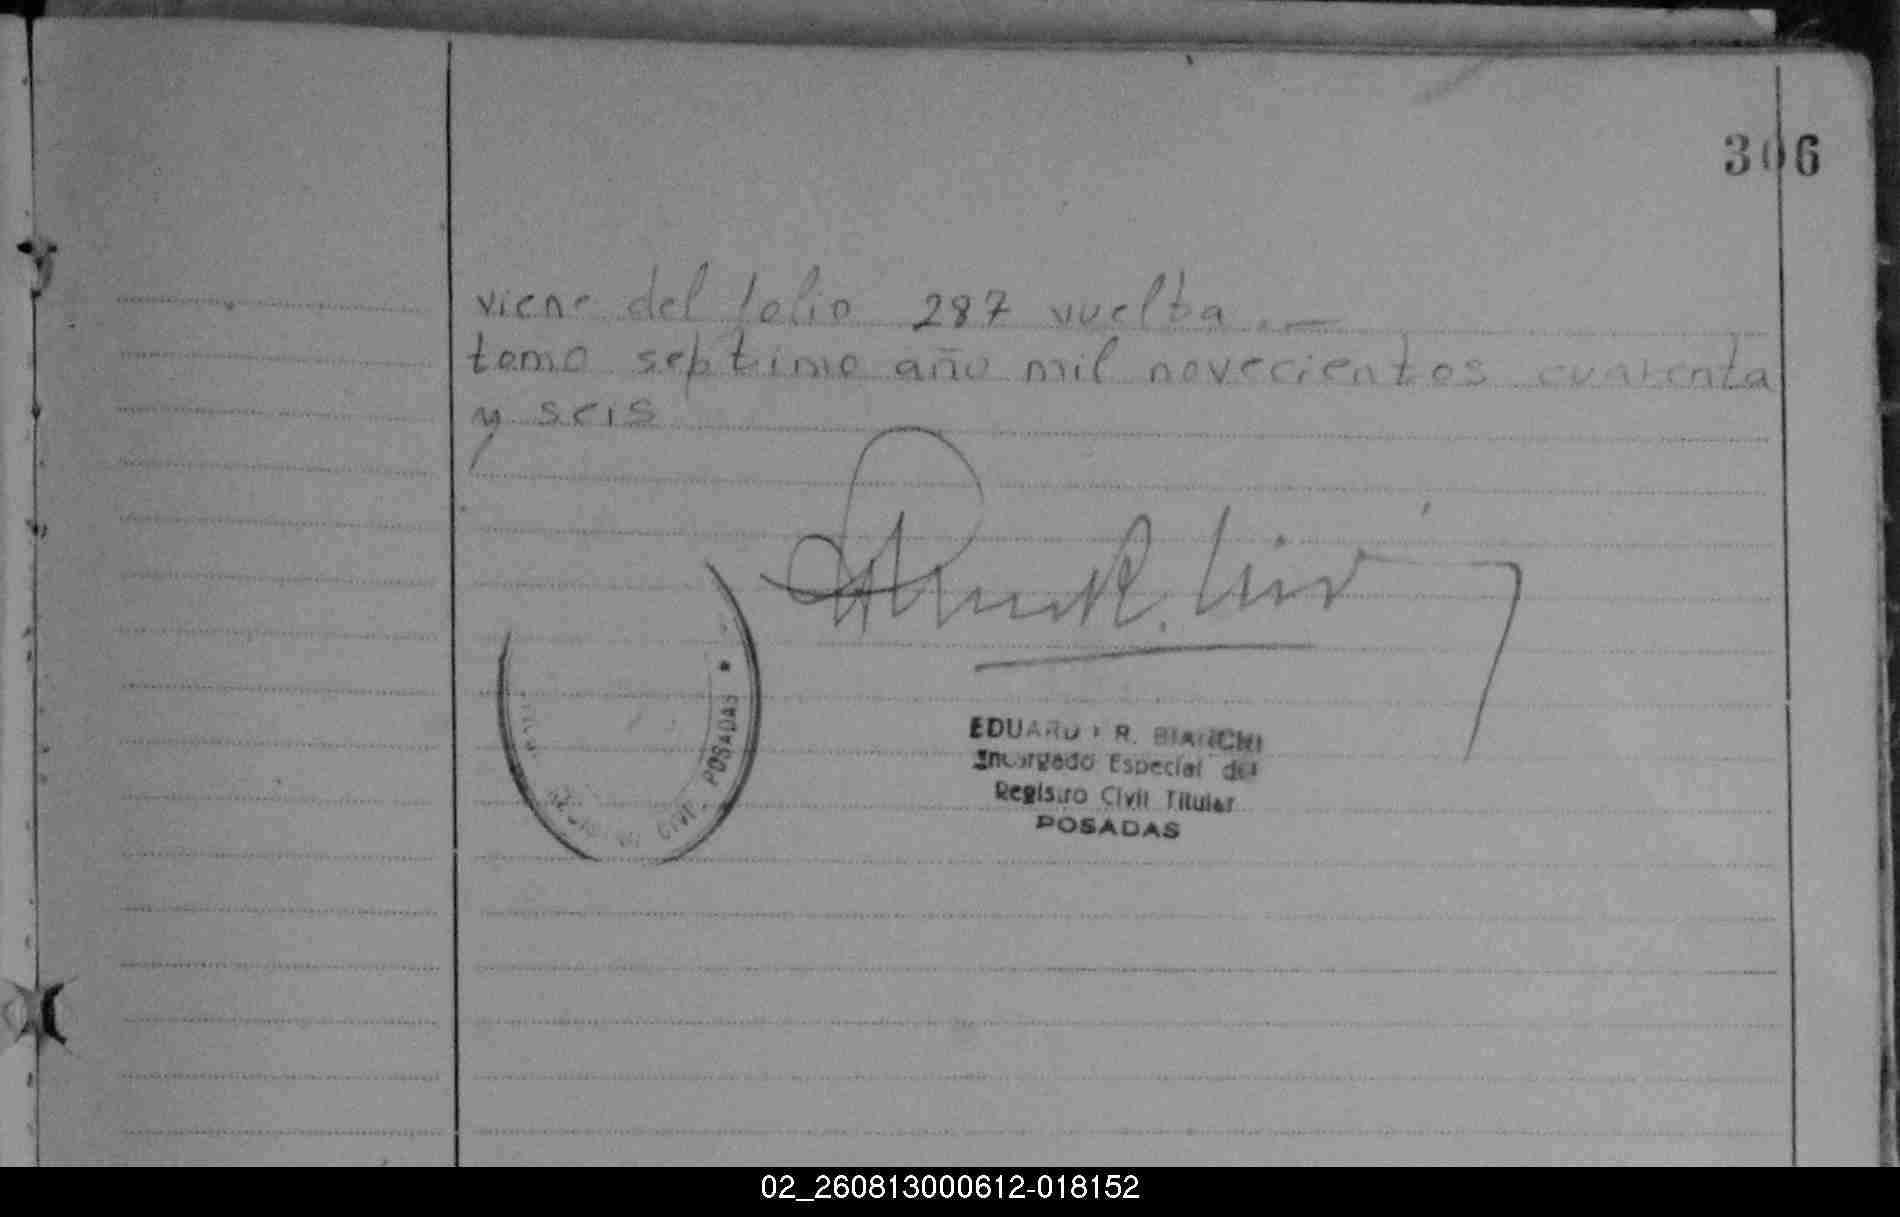 306
viene del folio 287 vuelta.—
tomo septimo año mil novecientos cuarenta
y seis
EDUARDO R. BIANCHI
Encargado Especial del
Registro Civil Titular
POSADAS
REGISTRO CIVIL POSADAS
02_260813000612-018152